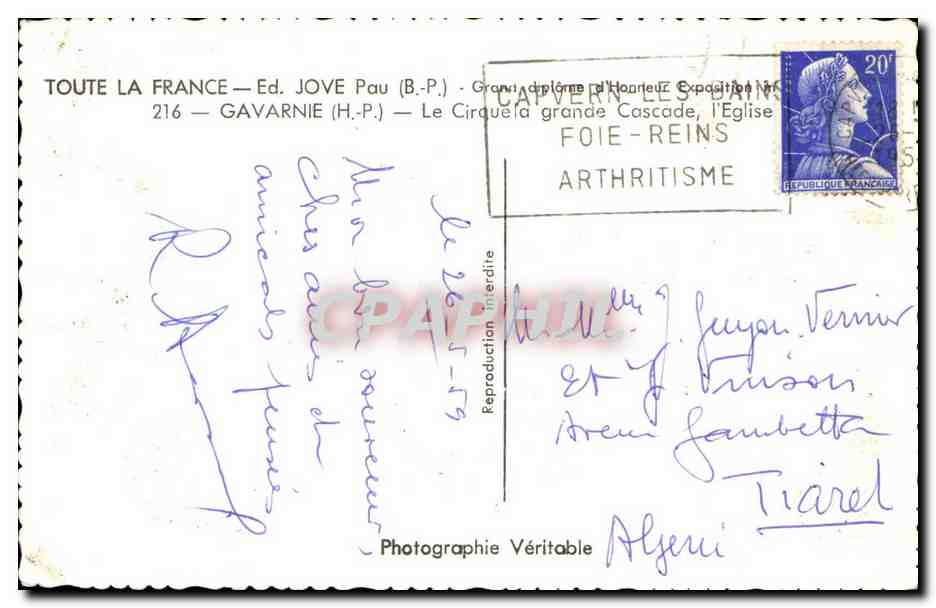 TOUTE LA FRANCE — Ed. JOVE Pau (B.-P.) - Grand diplôme d'Honneur Exposition in
216 — GAVARNIE (H.-P.) — Le Cirque la grande Cascade, l'Eglise
CAPVERN-LES-BAINS
FOIE-REINS
ARTHRITISME
20F
REPUBLIQUE FRANÇAISE
le 26-5-59
Mon bon souvenir
Chers amis et
amicales pensées
R
Reproduction interdite
CPAPHIL
Guyon Vernier
Et J
Avenue Gambetta
Tiaret
Algerie
Photographie Véritable